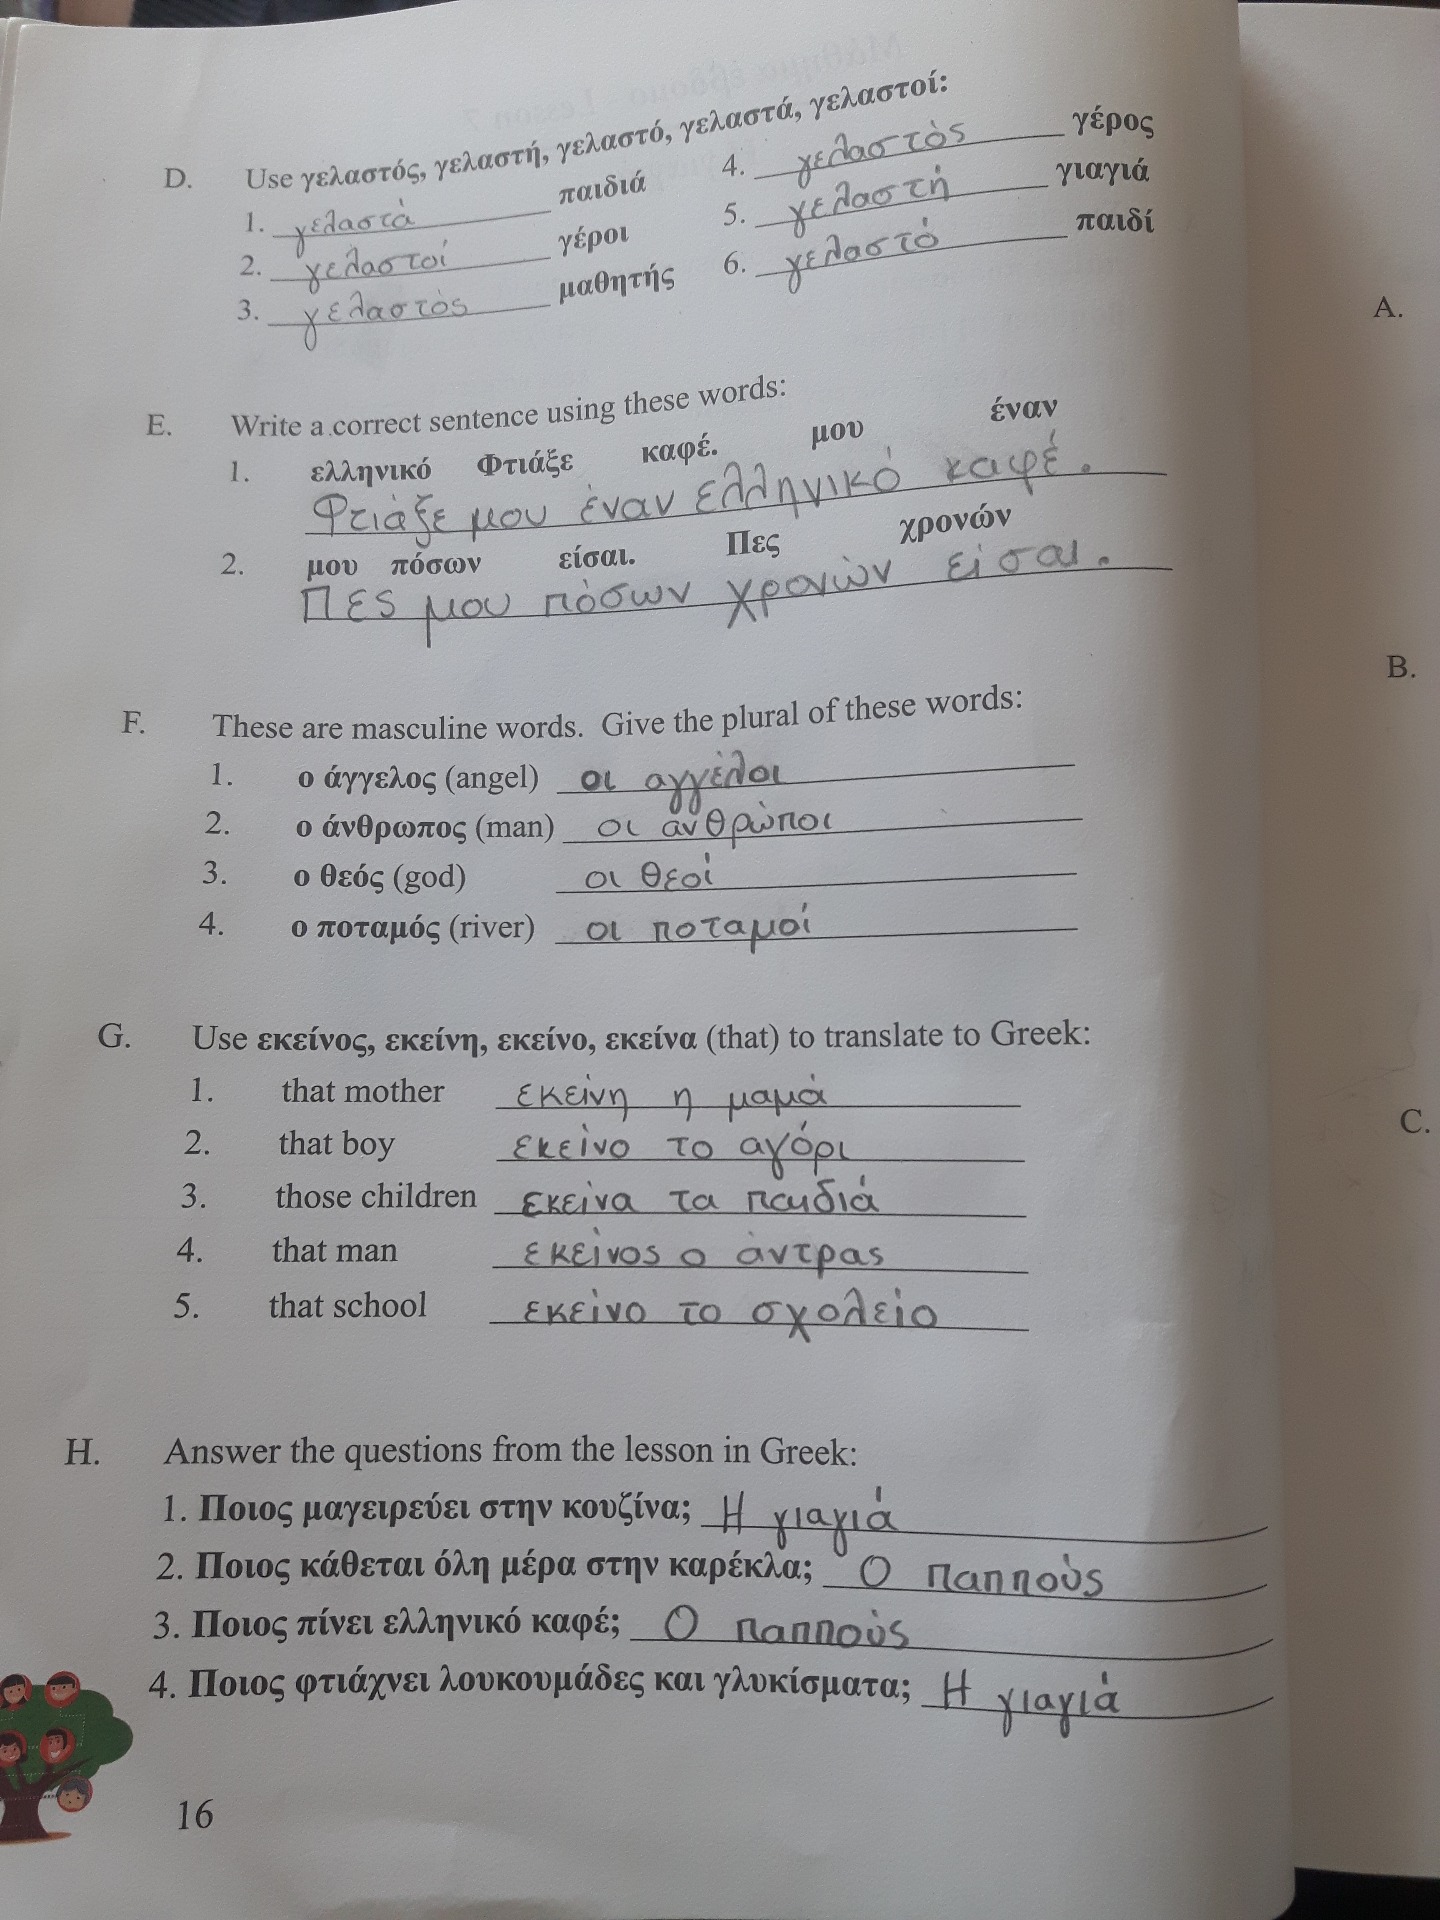 D. Use γελαστός, γελαστή, γελαστό, γελαστά, γελαστοί:
1. γελαστά παιδιά
2. γελαστοί γέροι
3. γελαστός μαθητής
4. γελαστός γέρος
5. γελαστή γιαγιά
6. γελαστό παιδί
E. Write a correct sentence using these words:
1. ελληνικό Φτιάξε καφέ. μου έναν
Φτιάξε μου έναν ελληνικό καφέ.
2. μου πόσων είσαι. Πες χρονών
Πες μου πόσων χρονών είσαι.
F. These are masculine words. Give the plural of these words:
1. ο άγγελος (angel) οι αγγέλοι
2. ο άνθρωπος (man) οι ανθρώποι
3. ο θεός (god) οι θεοί
4. ο ποταμός (river) οι ποταμοί
G. Use εκείνος, εκείνη, εκείνο, εκείνα (that) to translate to Greek:
1. that mother εκείνη η μαμά
2. that boy εκείνο το αγόρι
3. those children εκείνα τα παιδιά
4. that man εκείνος ο άντρας
5. that school εκείνο το σχολείο
H. Answer the questions from the lesson in Greek:
1. Ποιος μαγειρεύει στην κουζίνα; Η γιαγιά
2. Ποιος κάθεται όλη μέρα στην καρέκλα; Ο παππούς
3. Ποιος πίνει ελληνικό καφέ; Ο παππούς
4. Ποιος φτιάχνει λουκουμάδες και γλυκίσματα; Η γιαγιά
16
A.
B.
C.